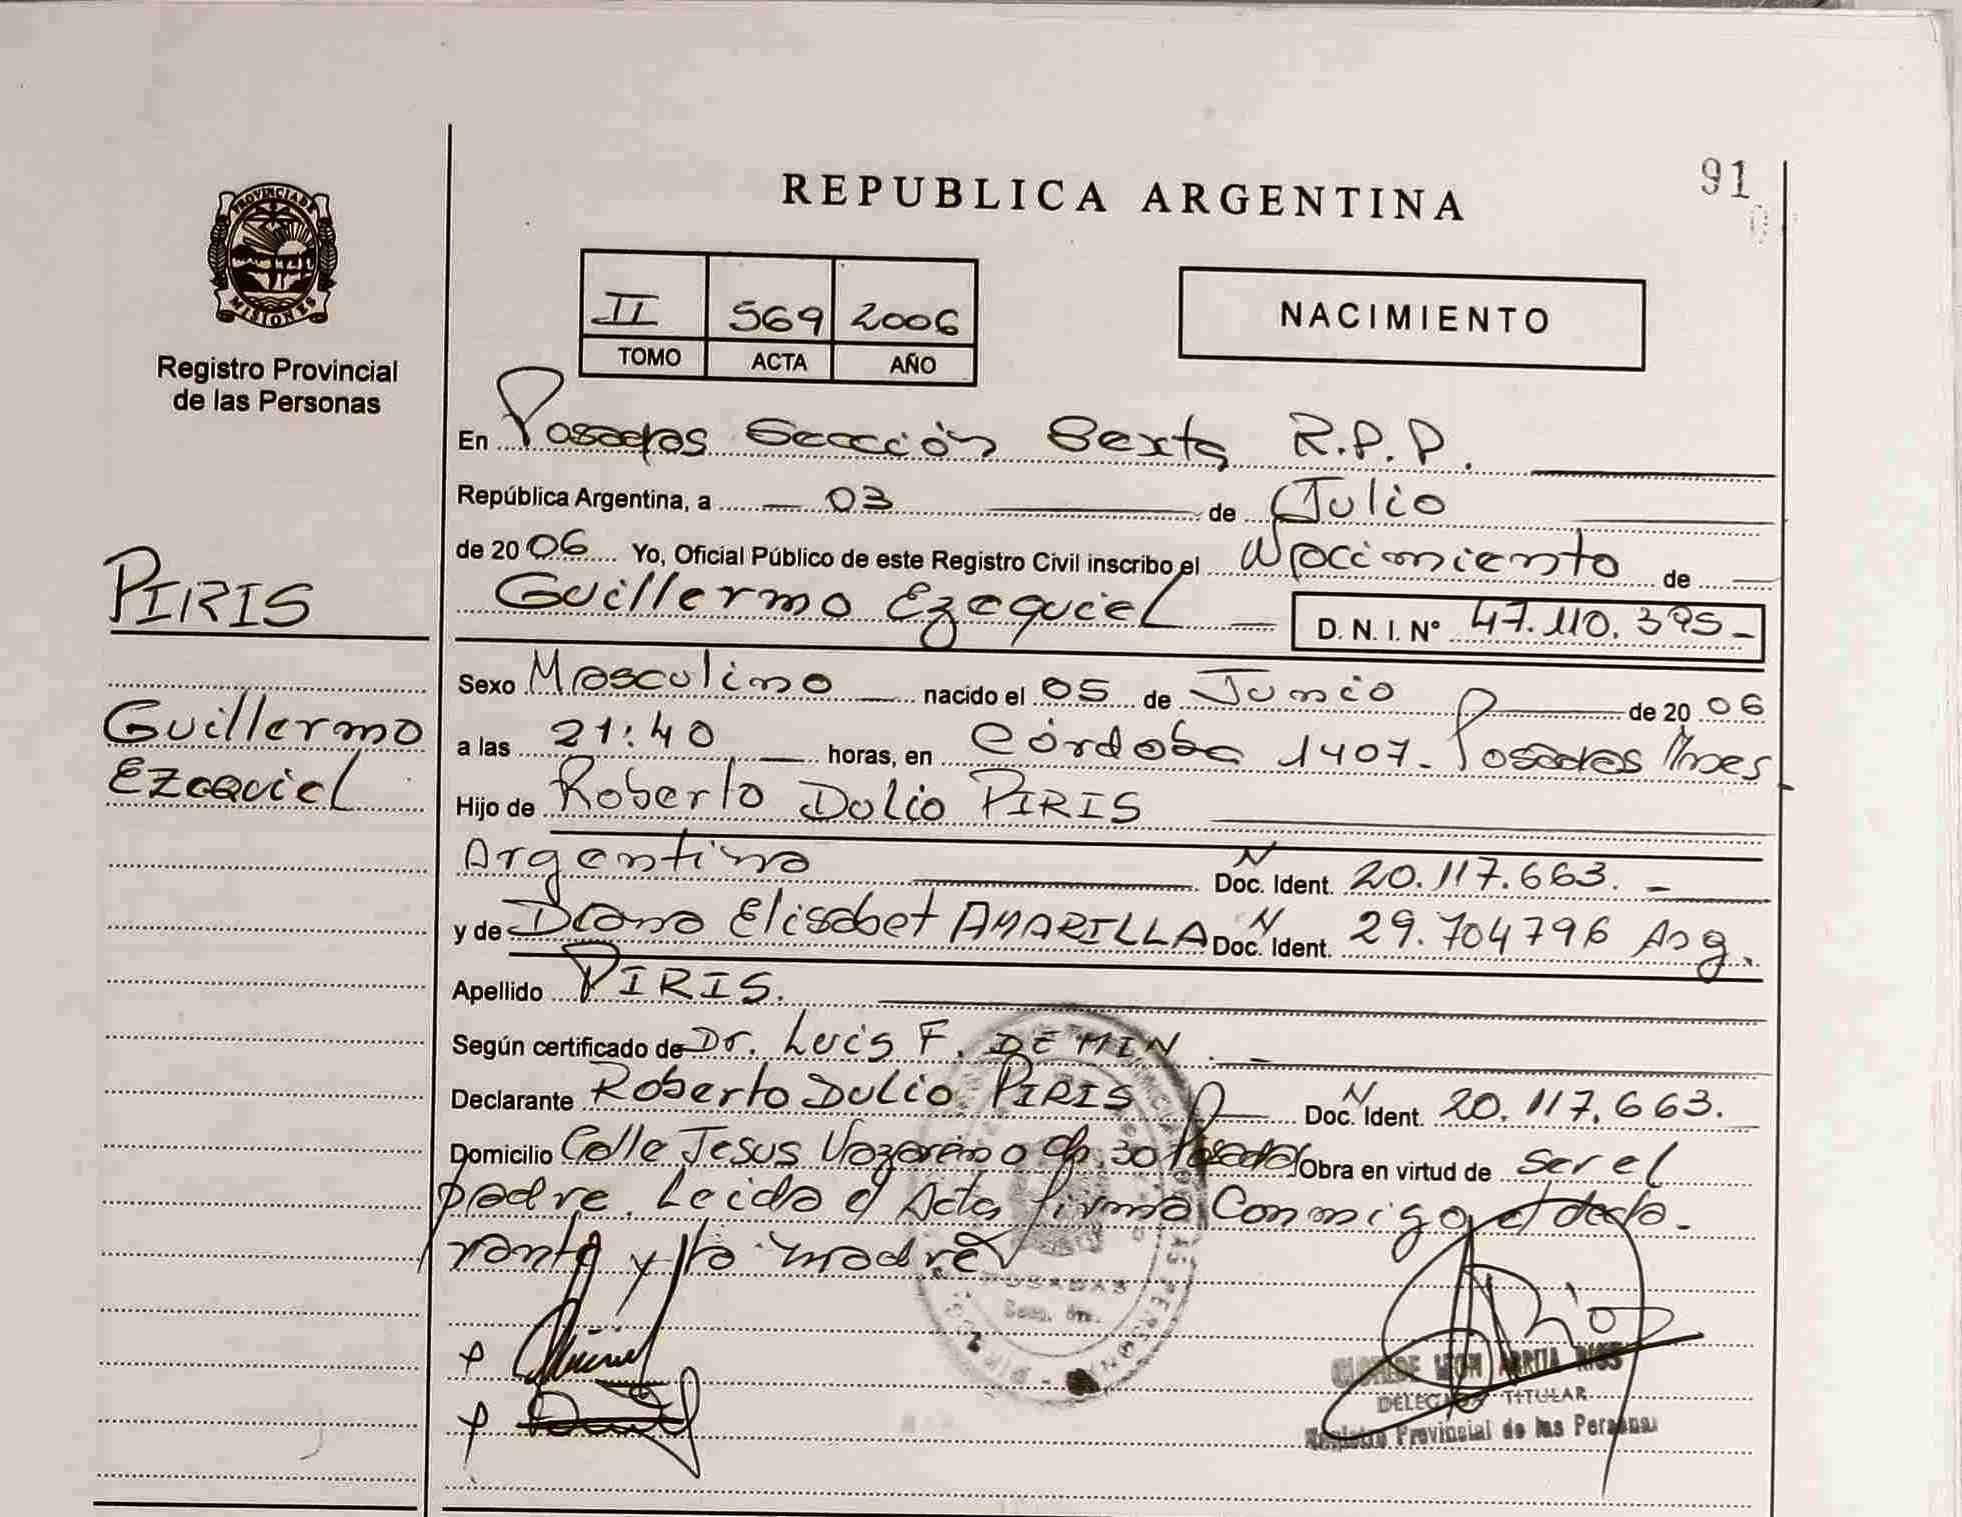 91
REPUBLICA ARGENTINA
PROVINCIA DE
MISIONES
Registro Provincial
de las Personas
II 569 2006
TOMO ACTA AÑO
NACIMIENTO
En Posadas Sección Sexta R.P.P.
República Argentina, a 03 de Julio
de 2006 Yo, Oficial Público de este Registro Civil inscribo el Nacimiento de
Guillermo Ezequiel D.N.I. Nº 47.110.395-
PIRIS
Guillermo
Ezequiel
Sexo Masculino nacido el 05 de Junio de 2006
a las 21:40 horas, en Córdoba 1407- Posadas Mnes
Hijo de Roberto Dulio PIRIS
Argentina N Doc. Ident. 20.117.663.-
y de Diana Elisabet AMARILLA N Doc. Ident. 29.704796 Arg.
Apellido PIRIS.
Según certificado de Dr. Luis F. DEMIN.
Declarante Roberto Dulio PIRIS N Doc. Ident. 20.117.663.
Domicilio Calle Jesus Nazareno Ch. 30 Posadas Obra en virtud de ser el
padre. Leida el Acta firma Conmigo el decla-
rante y la madre
POSADAS
Secc. 6ta.
DELEGADA TITULAR
Registro Provincial de las Personas